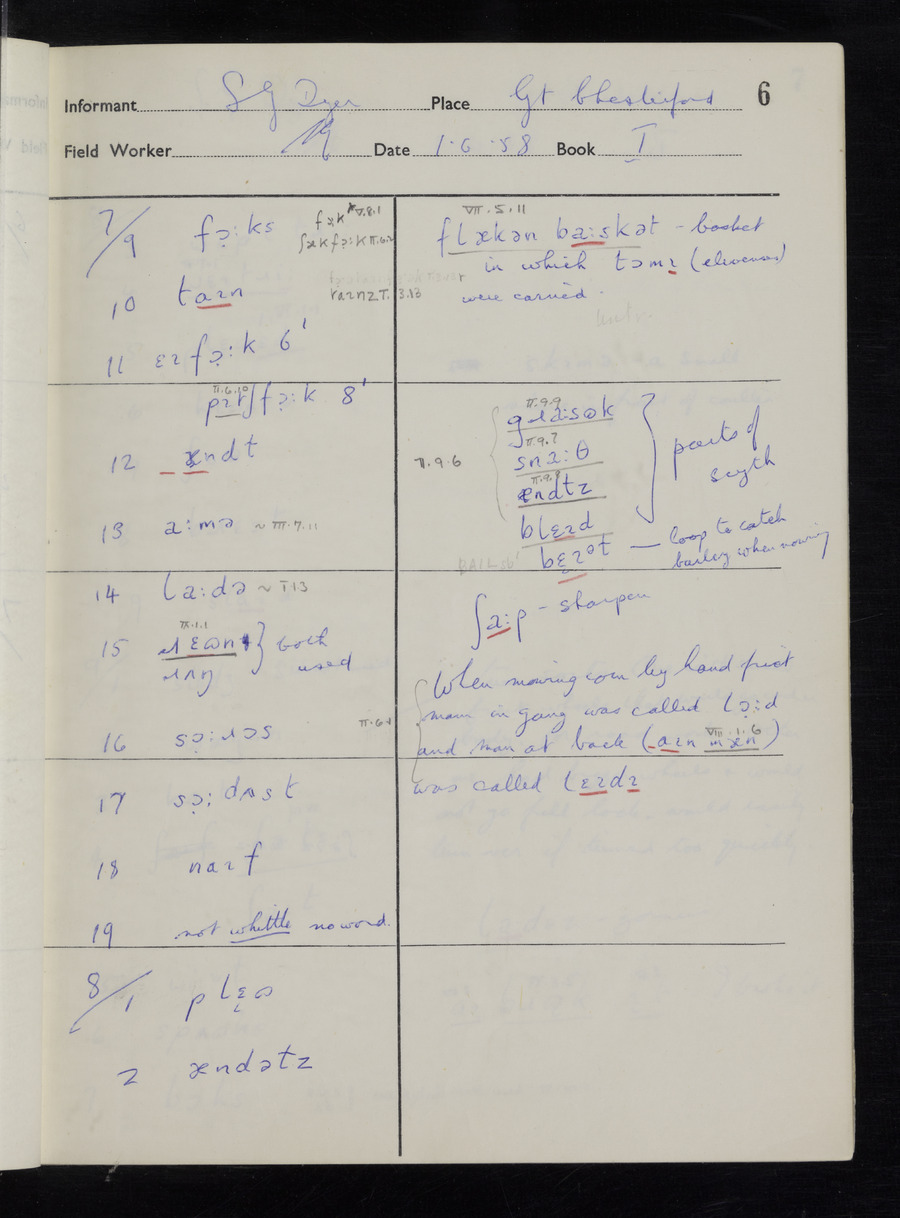 Informant S G Dyer Place Gt Chesterford 6
Field Worker Date 1·6·58 Book I
7/9 fə̣:ks
V.8.1
10 taɪn
11 ɛɪfə̣:k 6'
II.6.10
pɪtʃfə̣:k 8'
12 ændt
13 a:mə ~ III.7.11
14 la:də ~ I 13
IX.1.1
15 ɹɛɷnt } both
ɹʌŋ used
16 sə̣:ɹəs
17 sə̣:dʌst
18 naɪf
19 not whittle no word.
8/1 plɛ̣ɷ
2 ændətz
VII.5.11
flækən ba:skət - basket
in which (elevenses)
were carried.
II.9.9
II.9.7
II.9.6 snɑ:θ
II.9.8
ændtz
blɛɪd
parts of
scyth
bɛɪət — loop to catch
barley when mowing
ʃa:p - sharpen
When mowing corn by hand first
man in gang was called lə̣:d
VIII.1.6
and man at back (aɪn mæn)
was called lɛɪdɪ